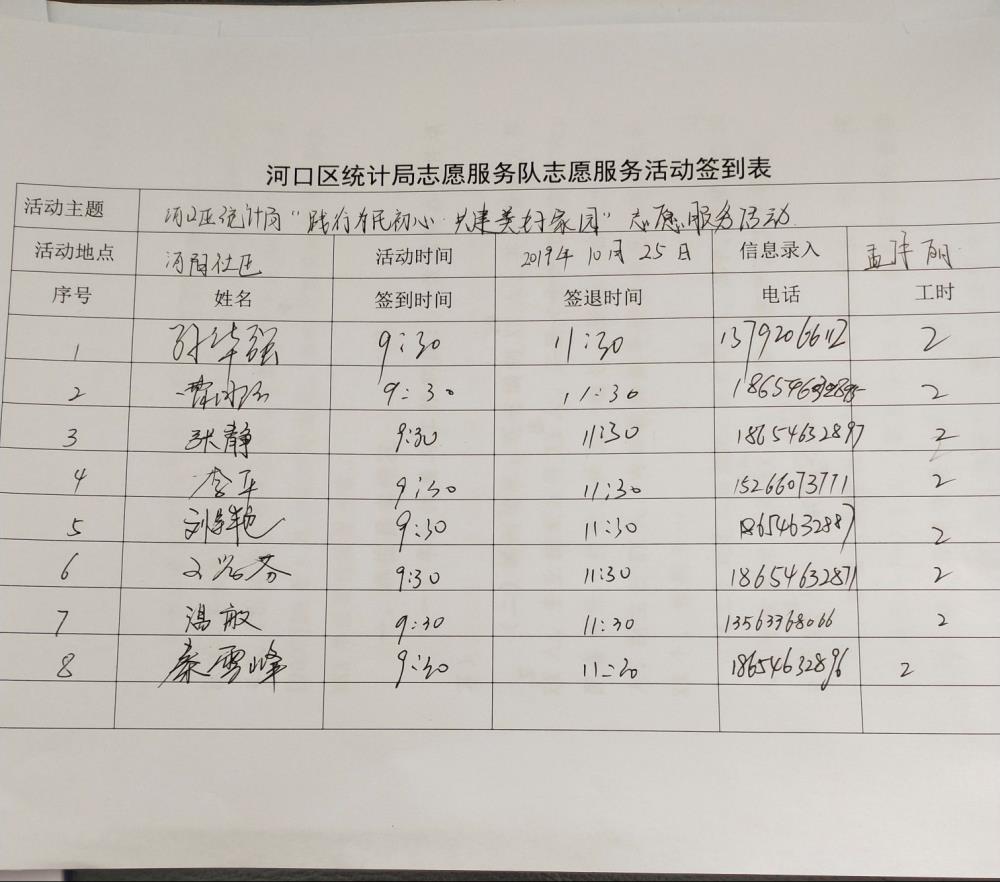 河口区统计局志愿服务队志愿服务活动签到表
活动主题 河口区统计局“践行为民初心·共建美好家园”志愿服务活动
活动地点 河阳社区 活动时间 2019年10月25日 信息录入 孟 丽
序号 姓名 签到时间 签退时间 电话 工时
1 华强 9:30 11:30 13792066112 2
2 9:30 11:30 2
3 张静 9:30 11:30 18654632897 2
4 李平 9:30 11:30 15266073771 2
5 刘 艳 9:30 11:30 18654632887 2
6 芬 9:30 11:30 18654632871 2
7 冯敏 9:30 11:30 13563368066 2
8 秦雪峰 9:30 11:30 18654632896 2